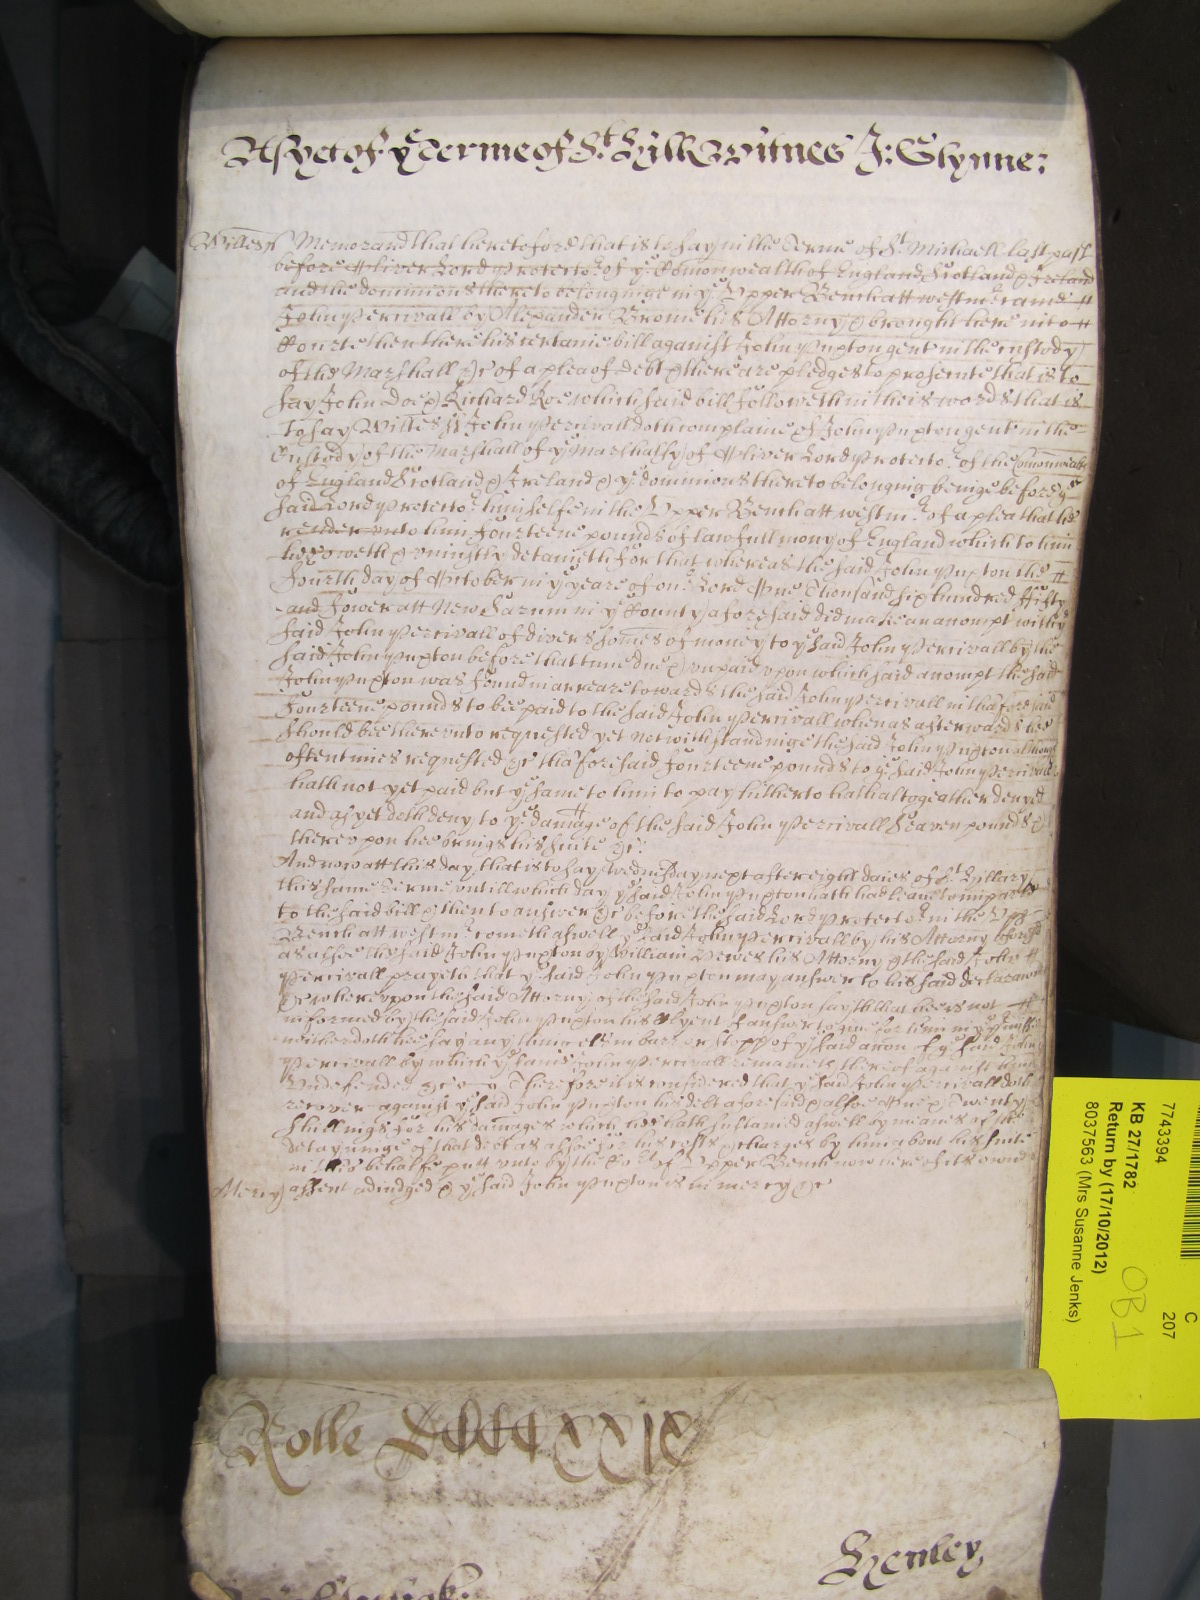 As yet of ye Terme of St Hill Witnes J: Glynne:
Wiltes ss Memorand that heretofore that is to say in the Terme of St Michaell last past
before Oliver Lord Protector of ye Comonwealth of England Scotland & Ireland
and the dominions thereto belonginge in ye Upper Bench att westmr came
John Percivall by Alexander Brome his Attorny & brought here into
Courte then there his certaine bill against John Pupton gent in the custody
of the Marshall &c of a plea of debt & there are pledges to prosecute that is to
say John Doe & Richard Roe which said bill followeth in theis words that is
To say Wiltes ss John Percivall doth complaine of John Pupton gent in the
Custody of the Marshall of ye Marshalsy of Oliver Lord Protector of the Comonwealth
of England Scotland & Ireland & ye dominions thereto belonging beinge before ye
said Lord Protector himselfe in the Upper Bench att westmr of a plea that he
render unto him fourteene pounds of lawfull mony of England which to him
hee oweth & uniustly detaineth for that whereas the said John Pupton the
fourth day of October in ye yeare of our Lord One Thousand six hundred fifty
and fower att New Sarum in ye County aforesaid did make an accompt with ye
said John Percivall of divers somes of money to ye said John Percivall by the
said John Pupton before that time due & unpaid upon which said accompt the said
John Pupton was found in arreare towards the said John Percivall in thaforesaid
fourteene pounds to bee paid to the said John Percivall when as afterwards hee
should bee thereunto requested yet notwithstandinge the said John Pupton although
oftentimes requested &c thaforesaid fourteene pounds to ye said John Percivall
hath not yet paid but ye same to him to pay hitherto hath altogeather denyed
and as yet doth deny to ye damage of the said John Percivall Seaven pounds &
thereupon hee brings his suite &c:
And now att this day that is to say Wednesday next after eight daies of St Hillary
this same Terme untill which day ye said John Pupton hath had leave to imparle
to the said bill & then to answer &c before the said Lord Protector in the Upp
Bench att westmr cometh aswell ye said John Percivall by his Attorny aforesd
as alsoe the said John Pupton by William Drewes his Attorny & the said John
Percivall prayeth that ye said John Pupton may answer to his said declaracon
&c whereupon the said Attorny of the said John Pupton sayth that hee is not
informed by the said John Pupton his Clyent of answer to give for him
neither doth hee say any thing els in barr or stopp of ye said accon of ye said John
Percivall by which ye same John Percivall remaineth thereof against him
Undefended &c Therefore it is considered that ye said John Percivall doth
recover against ye said John Pupton his debt aforesaid & alsoe One & Twenty
shillings for his damages which hee hath sustained aswell by meanes of the
detayninge of that debt as alsoe for his costs & charges by him about his suite
in this behalfe putt unto by the Cort of Upper Bench now here of its owne
Mercy assent adiudged & ye said John Pupton is in mercy &c
Rolle DCCCCXXIX
Henley
C
207
77433394
KB 27/1782
Return by (17/10/2012)
8037563 (Mrs Susanne Jenks)
OB 1